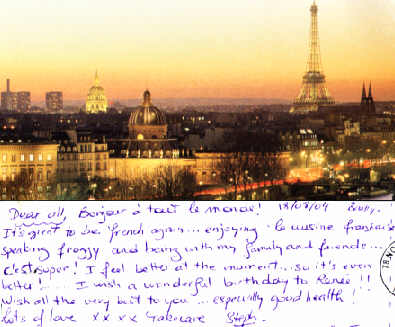 Dear all, Bonjour à tout le monde! 18/03/04
It's great to be french again... enjoying la cuisine française
speaking froggy and being with my family and friends...
C'est super! I feel better at the moment... so it's even
better!..... I wish a wonderful birthday to Renée!!
Wish all the very best to you... especially good health!
lots of love x x x x Steph.
18.NO